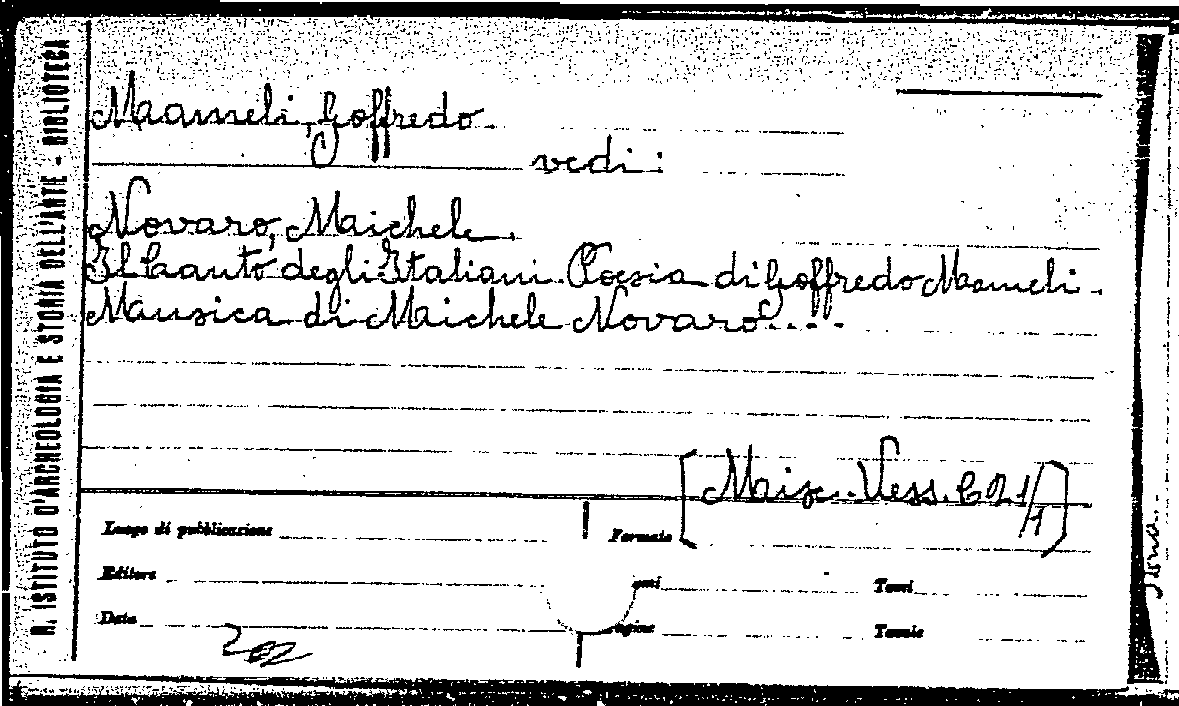 R. ISTITUTO D'ARCHEOLOGIA E STORIA DELL'ARTE - BIBLIOTECA
Mameli, Goffredo.
vedi:
Novaro, Michele.
Il Canto degli Italiani. Poesia di Goffredo Mameli.
Musica di Michele Novaro....
[Misc. Vess. C 21/1]
Luogo di pubblicazione
Formato
Editore
Tomi
Data
Tavole
202